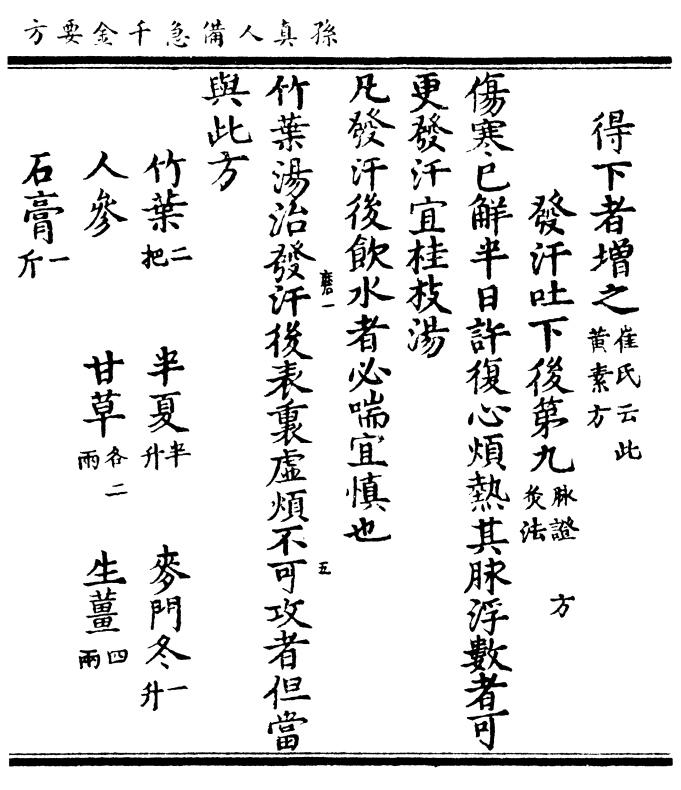 孫真人備急千金要方
得下者增之崔氏云此黄素方
發汗吐下後第九脉證 方灸法
傷寒已觧半日許復心煩熱其脉浮數者可
更發汗宜桂枝湯
凡發汗後飲水者必喘宜慎也
磨一 五
竹葉湯治發汗後表裏虛煩不可攻者但當
與此方
竹葉二把 半夏半升 麥門冬一升
人參 甘草各二兩 生薑四兩
石膏一斤